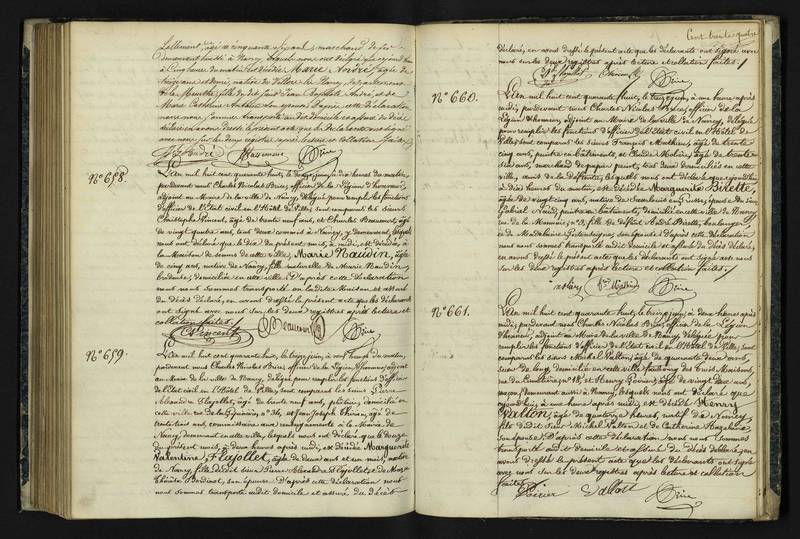 Lallement, âgé de cinquante six ans, marchand de
demeurant
Marie André, âgée de
treize ans et demi, native de
de la Meurthe, fille du dit André, et de
Marie Catherine son épouse. D'après cette déclaration
nous nous sommes transporté au dit domicile et assuré du décès
déclaré, en avons dressé le présent acte que les déclarants ont signé
avec nous sur les deux registres après lecture et collation faites.
Brice
N° 658.
L'an mil huit cent quarante huit, le treize juin, à dix heures du matin,
pardevant nous Charles Nicolas Brice, officier de la Légion d'honneur,
adjoint au Maire de la ville de Nancy, délégué pour remplir les fonctions
d'officier de l'Etat civil en l'Hôtel de Ville, sont comparus les sieurs
Christophe Vincent, âgé de trente neuf ans, et Charles Beaucourt, âgé
de vingt quatre ans, tous deux commis à Nancy, y demeurant, lesquels
nous ont déclaré que le dix du présent mois, à midi, est décédée, à
la Maison de secours de cette ville, Marie Naudin, âgée
de cinq ans, native de Nancy, fille naturelle de Marie Naudin,
brodeuse, domiciliée en cette ville. D'après cette déclaration
nous nous sommes transporté en la dite Maison et assuré
du décès déclaré, en avons dressé le présent acte que les déclarants
ont signé avec nous sur les deux registres après lecture et
collation faites.
C. Vincent Beaucourt Brice
N° 659.
L'an mil huit cent quarante huit, le treize juin, à onze heures du matin,
pardevant nous Charles Nicolas Brice, officier de la Légion d'honneur, adjoint
au Maire de la ville de Nancy, délégué pour remplir les fonctions d'officier
de l'Etat civil en l'Hôtel de Ville, sont comparus les sieurs Pierre
Alexandre Flajollet, âgé de trente neuf ans, plâtrier, domicilié en
cette ville rue de la Pépinière, n° 34, et Jean Joseph Thirion, âgé de
trente trois ans, commissaire aux enterrements à la Mairie de
Nancy, demeurant en cette ville, lesquels nous ont déclaré que le douze
du présent mois, à deux heures après midi, est décédée Marguerite
Valentine, Flajollet, âgée de deux ans et un mois, native
de Nancy, fille du dit sieur Pierre Alexandre Flajollet et de Marie
Thérèse son épouse. D'après cette déclaration nous
nous sommes transporté au dit domicile et assuré du décès
Cent trente quatre
déclaré, en avons dressé le présent acte que les déclarants ont signé avec
nous sur les deux registres après lecture et collation faites.
Brice
N° 660.
L'an mil huit cent quarante huit, le treize juin, à une heure après
midi, pardevant nous Charles Nicolas Brice, officier de la
Légion d'honneur, adjoint au Maire de la ville de Nancy, délégué
pour remplir les fonctions d'officier de l'Etat civil en l'Hôtel de
Ville, sont comparus les sieurs François Mathieu, âgé de trente
cinq ans, peintre en bâtiments, et Emile Molière, âgé de trente
six ans, marchand de papier peint, tous deux domiciliés en cette
ville, amis de la défunte, lesquels nous ont déclaré que aujourd'hui
à dix heures du matin, est décédée Marguerite Bilette,
âgée de vingt cinq ans, native de épouse du sieur
Gabriel peintre en bâtiments, domicilié en cette ville de Nancy
rue de la Monnaie, n° fille de défunt André Bilette, boulanger,
et de Madeleine son épouse. D'après cette déclaration
nous nous sommes transporté au dit domicile et assuré du décès déclaré,
en avons dressé le présent acte que les déclarants ont signé avec nous
sur les deux registres après lecture et collation faites.
Brice
N° 661.
L'an mil huit cent quarante huit, le treize juin, à deux heures après
midi, pardevant nous Charles Nicolas Brice, officier de la Légion
d'honneur, adjoint au Maire de la ville de Nancy, délégué pour
remplir les fonctions d'officier de l'Etat civil en l'Hôtel de Ville, sont
comparus les sieurs Michel Vallon, âgé de quarante deux ans,
scieur de long, domicilié en cette ville faubourg des Trois Maisons,
rue du Cimetière n° 18, et Henry Poirier, âgé de vingt deux ans,
maçon, demeurant aussi à Nancy, lesquels nous ont déclaré que
aujourd'hui, à une heure après midi, est décédé Henry
Vallon, âgé de quatorze heures, natif de Nancy,
fils du dit sieur Michel Vallon et de Catherine
son épouse. D'après cette déclaration nous nous sommes
transporté au dit domicile et assuré du décès déclaré, en
avons dressé le présent acte que les déclarants ont signé
avec nous sur les deux registres après lecture et collation
faites.
Poirier Vallon Brice